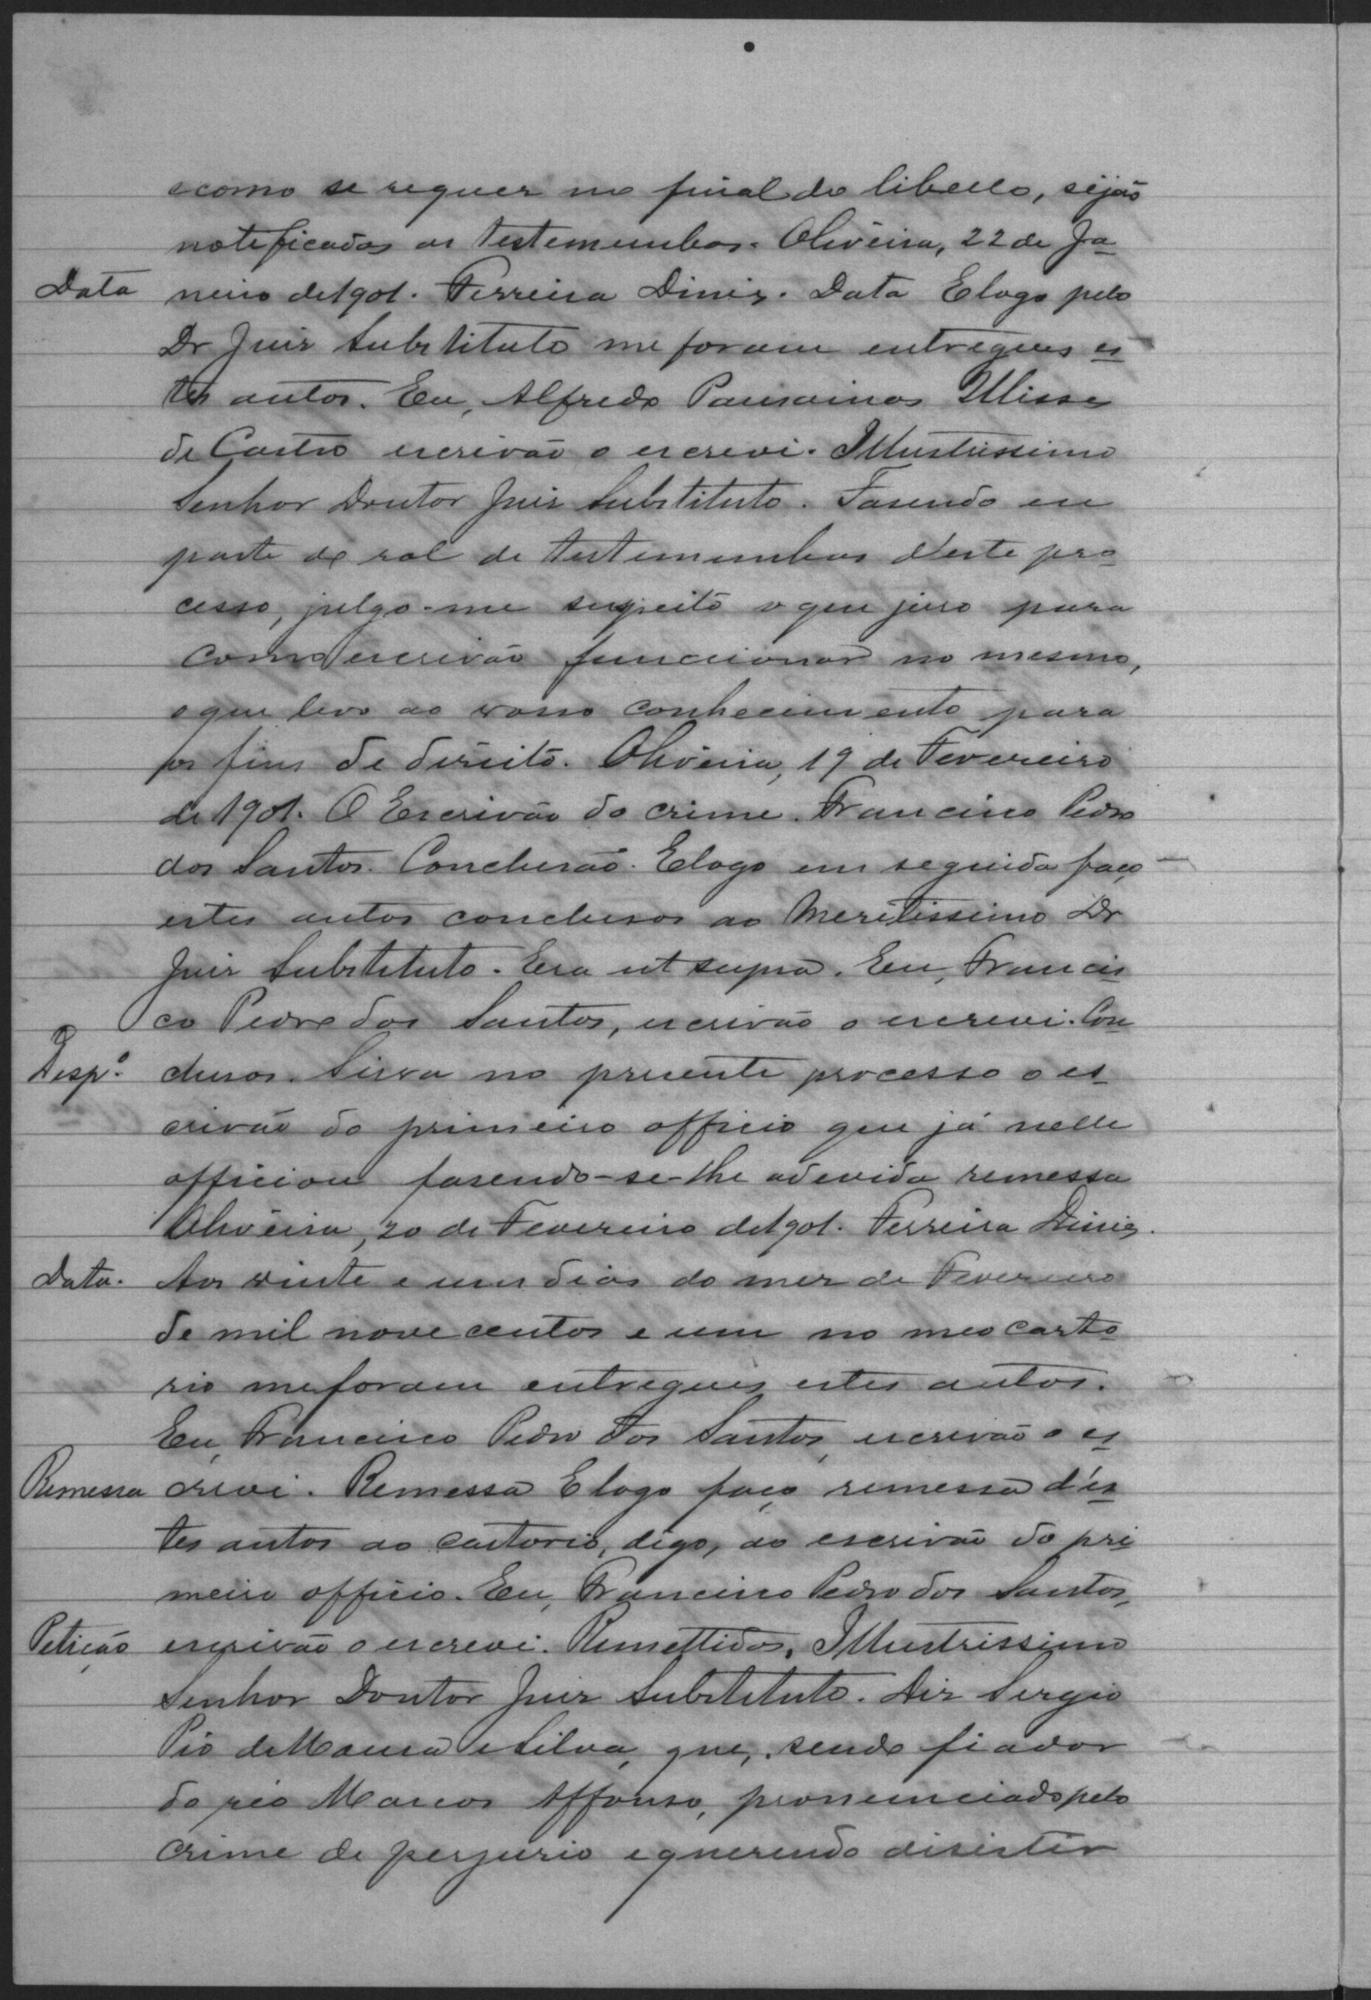 e como se requer no final do libello, sejão
notificadas as testemunhas. Oliveira, 22 de Ja
Data neiro de 1901. Ferreira Diniz. Data E logo pelo
Dr Juiz Substituto me foram entregues es
tes autos. Eu, Alfredo Pausainas Ulisses
de Castro escrivão o escrevi. Illustrissimo
Senhor Doutor Juiz Substituto. Fasendo eu
parte do rol de testemunhas d'este pro
cesso, julgo-me suspeito o que juro para
como escrivão funccionar no mesmo,
o que levo ao vosso conhecimento para
os fins de direito. Oliveira, 19 de Fevereiro
de 1901. O Escrivão do crime. Francisco Pedro
dos Santos. Conclusão. E logo em seguida faço
estes autos conclusos ao Meritissimo Dr
Juiz Substituto. Era ut supra. Eu, Francis
co Pedro dos Santos, escrivão o escrevi. Con
Desp.º clusos. Sirva no presente processo o es
crivão do primeiro officio que já nelle
officiou fasendo-se-lhe a devida remessa
Oliveira, 20 de Fevereiro de 1901. Ferreira Diniz.
Data. Aos vinte e um dias do mez de Fevereiro
de mil nove centos e um no meo carto
rio me foram entregues estes autos.
Eu, Francisco Pedro dos Santos, escrivão o es
Remessa crevi. Remessa E logo faço remessa d'es
tes autos ao cartorio, digo, ao escrivão do pri
meiro officio. Eu, Francisco Pedro dos Santos,
Petição escrivão o escrevi. Remettidos. Illustrissimo
Senhor Doutor Juiz Substituto. Diz Sergio
Pio de Moura e Silva, que, sendo fiador
do réo Marcos Affonso, pronunciado pelo
crime de perjurio e querendo disistir